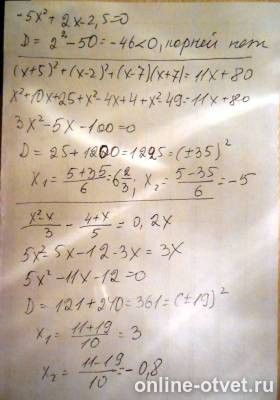 -5x²+2x-2,5=0
D=2²-50=-46<0, корней нет
(x+5)²+(x-2)²+(x-7)(x+7)=11x+80
x²+10x+25+x²-4x+4+x²-49=11x+80
3x²-5x-100=0
D=25+1200=1225=(±35)²
x₁=(5+35)/6=6 2/3; x₂=(5-35)/6=-5
(x²-x)/3 - (4+x)/5 = 0,2x
5x²-5x-12-3x=3x
5x²-11x-12=0
D=121+240=361=(±19)²
x₁=(11+19)/10=3
x₂=(11-19)/10=-0,8
online-otvet.ru